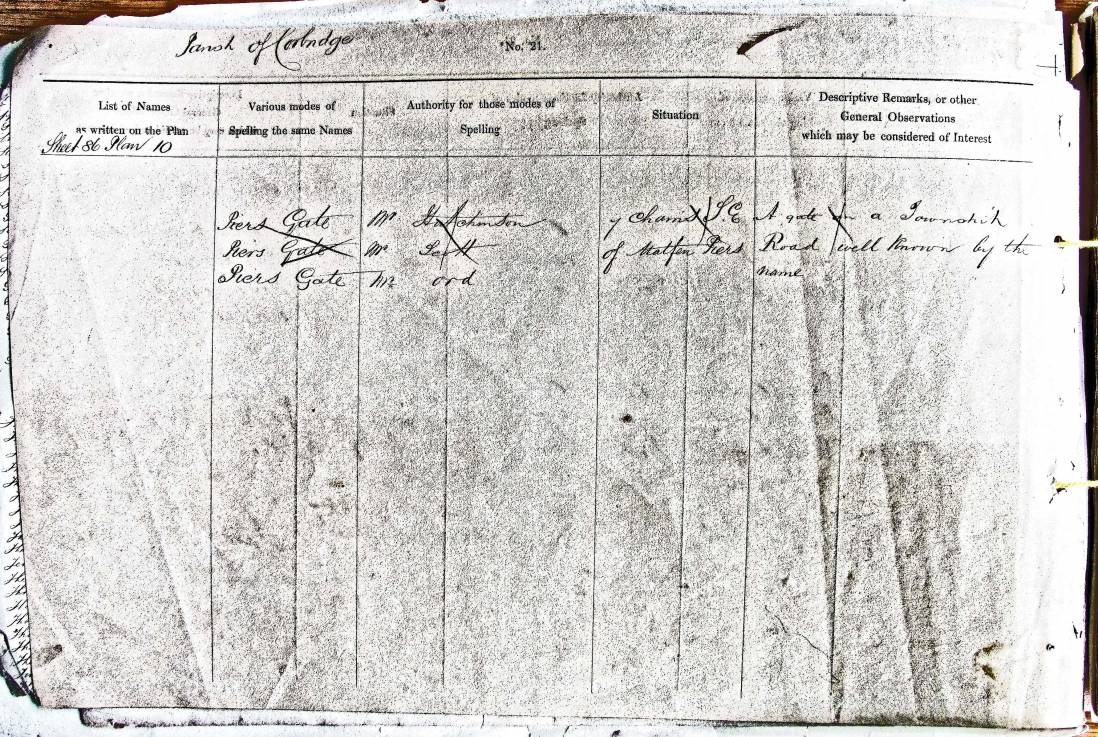 Parish of Corbridge
No. 21.
List of Names
as written on the Plan
Various modes of
Spelling the same Names
Authority for those modes of
Spelling
Situation
Descriptive Remarks, or other
General Observations
which may be considered of Interest
Sheet 86 Plan 10
Piers Gate Mr Hutchinson 7 Chains S.E A gate on a Township
Piers Gate Mr Scott of Matfen Piers Road well known by the
Piers Gate Mr ord name